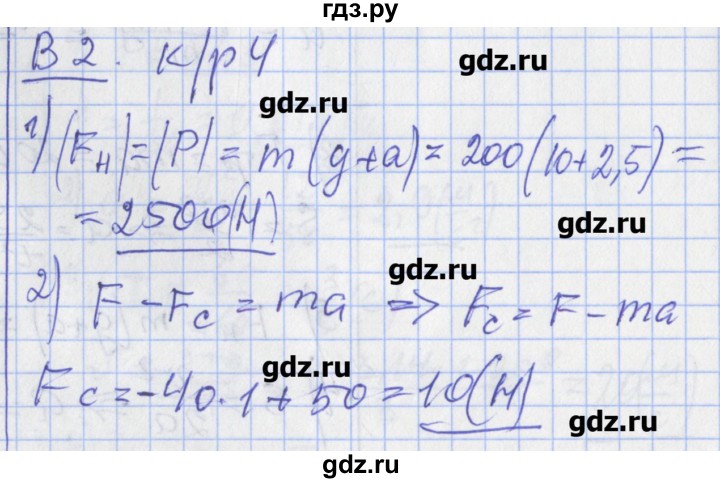 гдз.ру
В 2. к/р 4
gdz.ru
gdz.ru
1) |Fн| = |P| = m(g+a) = 200(10+2,5) =
= 2500(Н)
gdz.ru
gdz.ru
2) F - Fc = ma => Fc = F - ma
gdz.ru
Fc = -40·1 + 50 = 10(Н)
gdz.ru
gdz.ru